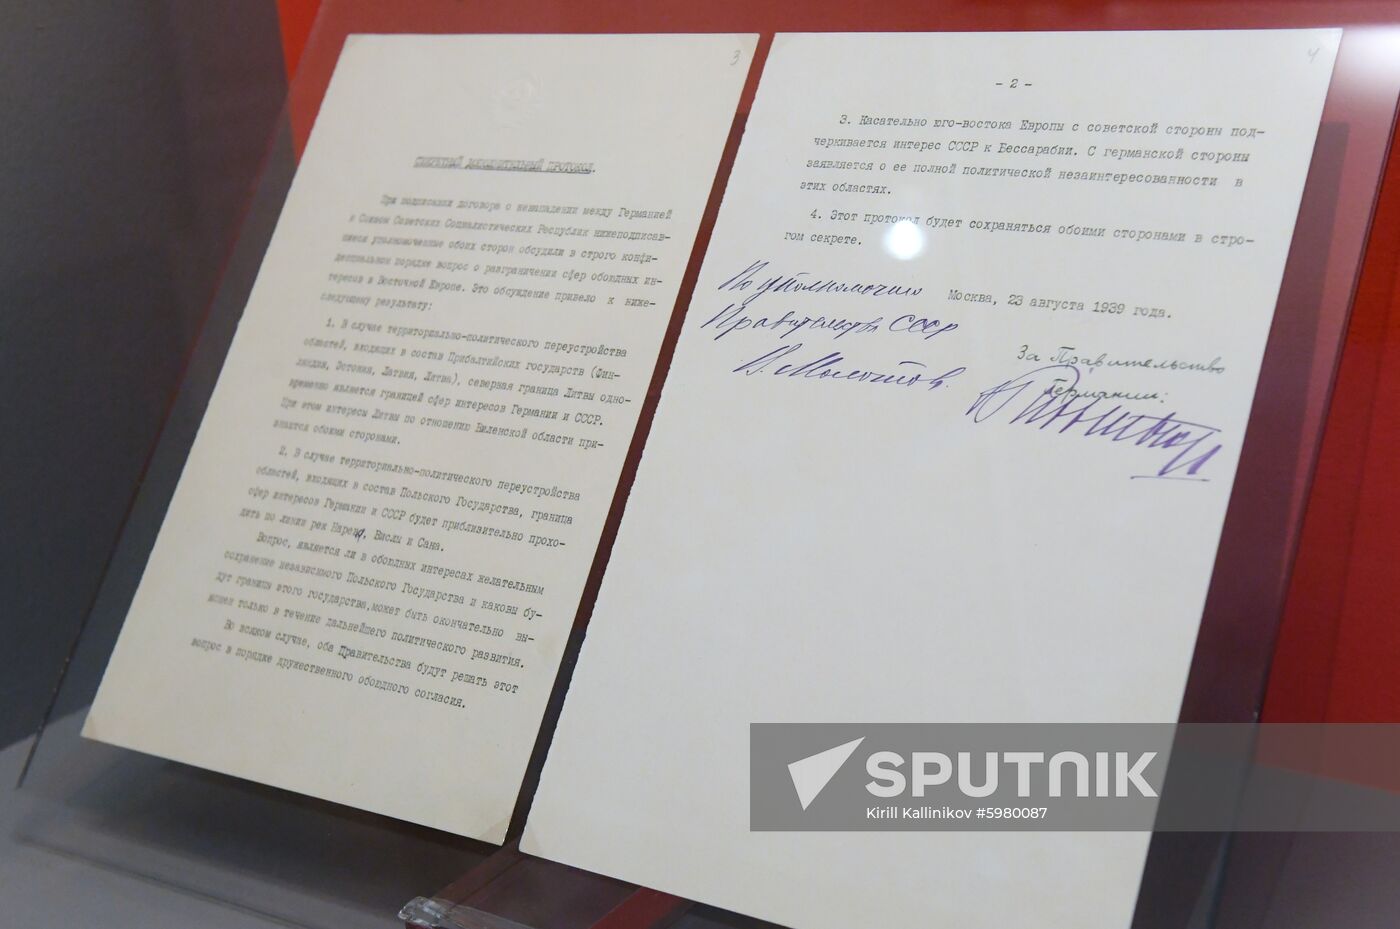 3
СЕКРЕТНЫЙ ДОПОЛНИТЕЛЬНЫЙ ПРОТОКОЛ.
При подписании договора о ненападении между Германией
и Союзом Советских Социалистических Республик нижеподписав-
шиеся уполномоченные обоих сторон обсудили в строго конфи-
денциальном порядке вопрос о разграничении сфер обоюдных ин-
тересов в Восточной Европе. Это обсуждение привело к ниже-
следующему результату:
1. В случае территориально-политического переустройства
областей, входящих в состав Прибалтийских государств (Фин-
ляндия, Эстония, Латвия, Литва), северная граница Литвы одно-
временно является границей сфер интересов Германии и СССР.
При этом интересы Литвы по отношению Виленской области при-
знаются обоими сторонами.
2. В случае территориально-политического переустройства
областей, входящих в состав Польского Государства, граница
сфер интересов Германии и СССР будет приблизительно прохо-
дить по линии рек Нарева, Вислы и Сана.
Вопрос, является ли в обоюдных интересах желательным
сохранение независимого Польского Государства и каковы бу-
дут границы этого государства, может быть окончательно вы-
яснен только в течение дальнейшего политического развития.
Во всяком случае, оба Правительства будут решать этот
вопрос в порядке дружественного обоюдного согласия.
4
- 2 -
3. Касательно юго-востока Европы с советской стороны под-
черкивается интерес СССР к Бессарабии. С германской стороны
заявляется о ее полной политической незаинтересованности в
этих областях.
4. Этот протокол будет сохраняться обоими сторонами в стро-
гом секрете.
Москва, 23 августа 1939 года.
По уполномочию
Правительства СССР
В. Молотов.
За Правительство
Германии:
SPUTNIK
Kirill Kallinikov #5980087